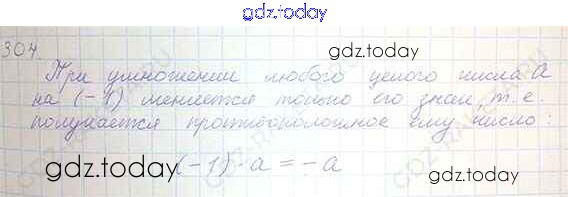 gdz.today
304.
gdz.today
При умножении любого целого числа a
на (-1) меняется только его знак, т.е.
получается противоположное ему число:
gdz.today (-1) · a = -a gdz.today